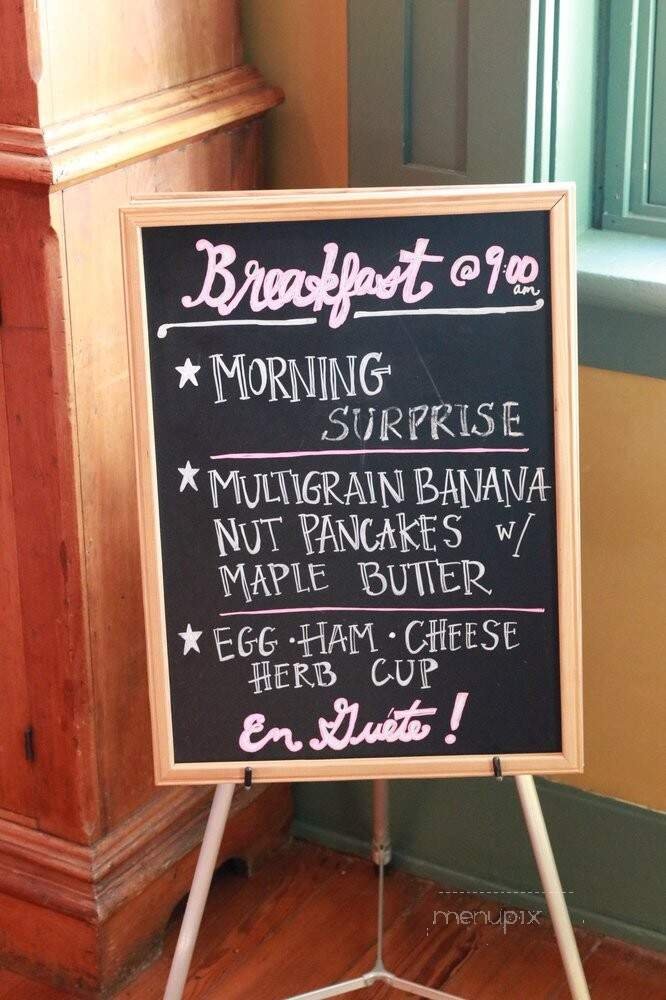 Breakfast @ 9:00 am
MORNING
SURPRISE
MULTIGRAIN BANANA
NUT PANCAKES w/
MAPLE BUTTER
EGG · HAM · CHEESE
HERB CUP
En Guéte!
menupix